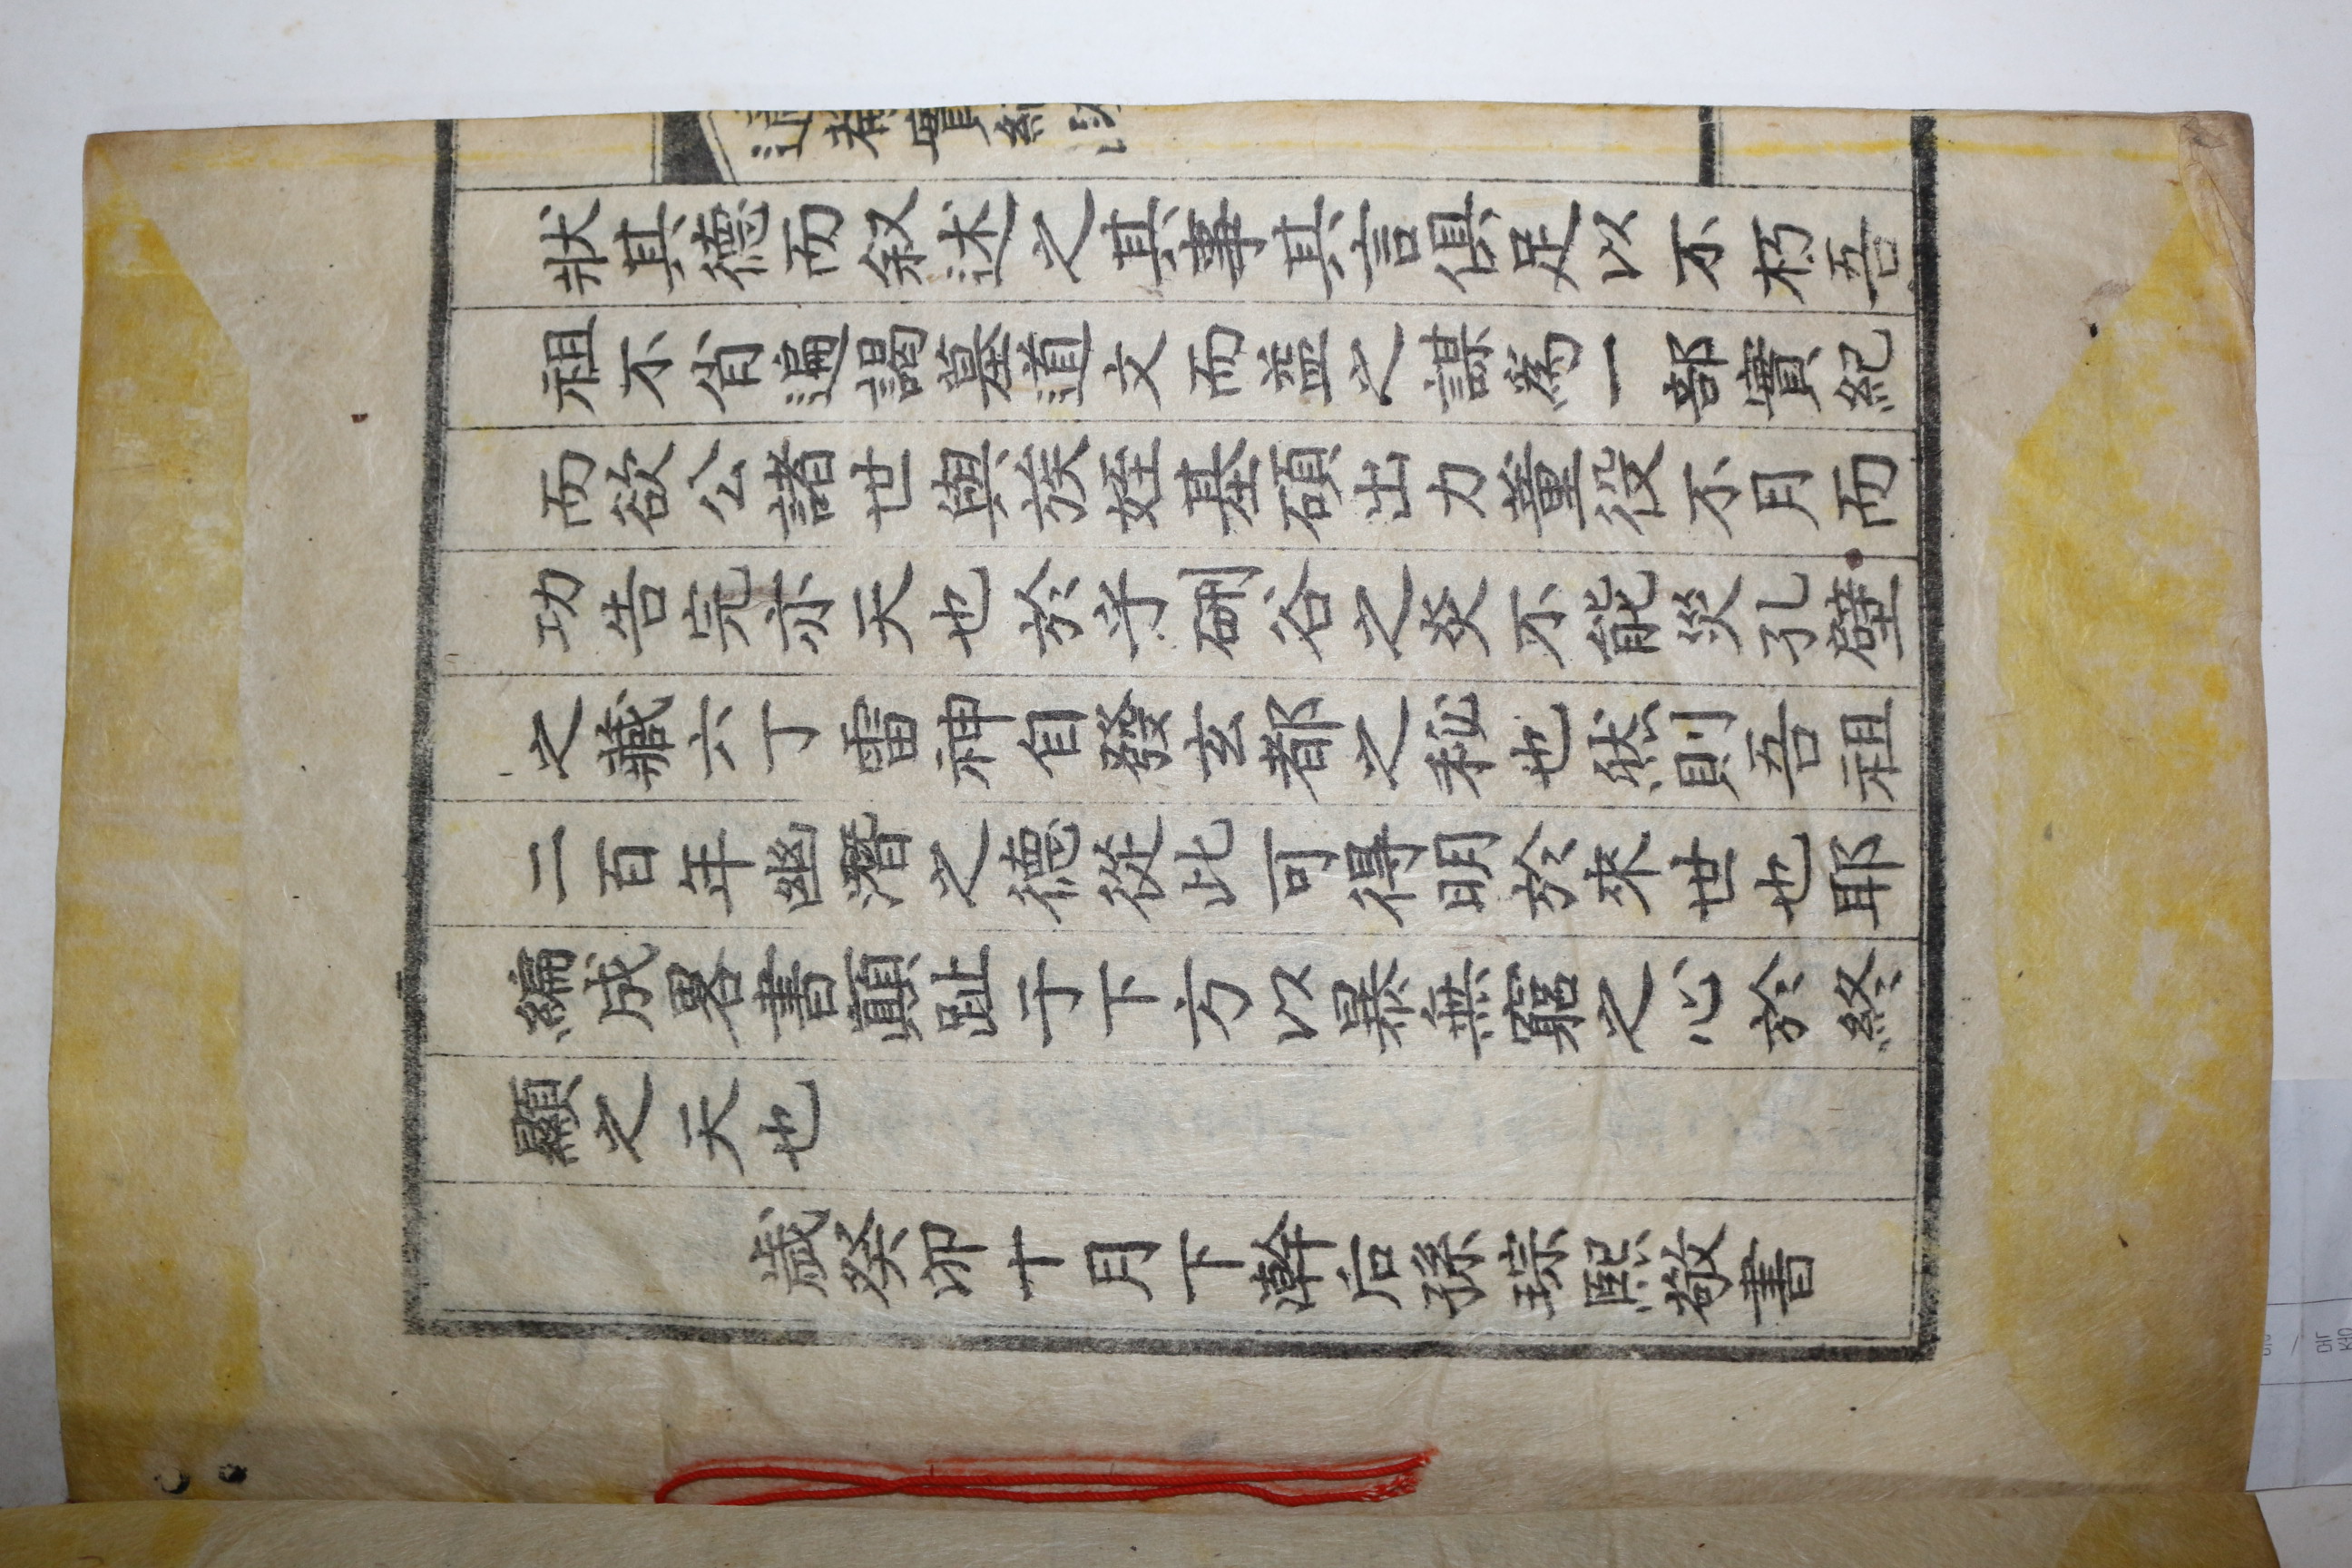 菴實紀
狀其德而叙述之其事其言俱足以不朽吾
祖不肖遍謁墓道文而益之謀爲一部實紀
而欲公諸世與族姪基碩出力董役不月而
功告完亦天也於乎硎谷之炎不能災孔壁
之藏六丁雷神自發玄都之秘也然則吾祖
二百年幽潛之德從此可得明於來世也耶
編成畧書顚趾于下方以暴無窮之心於終
顯之天也
歲癸卯十月下澣后孫琮熙敬書